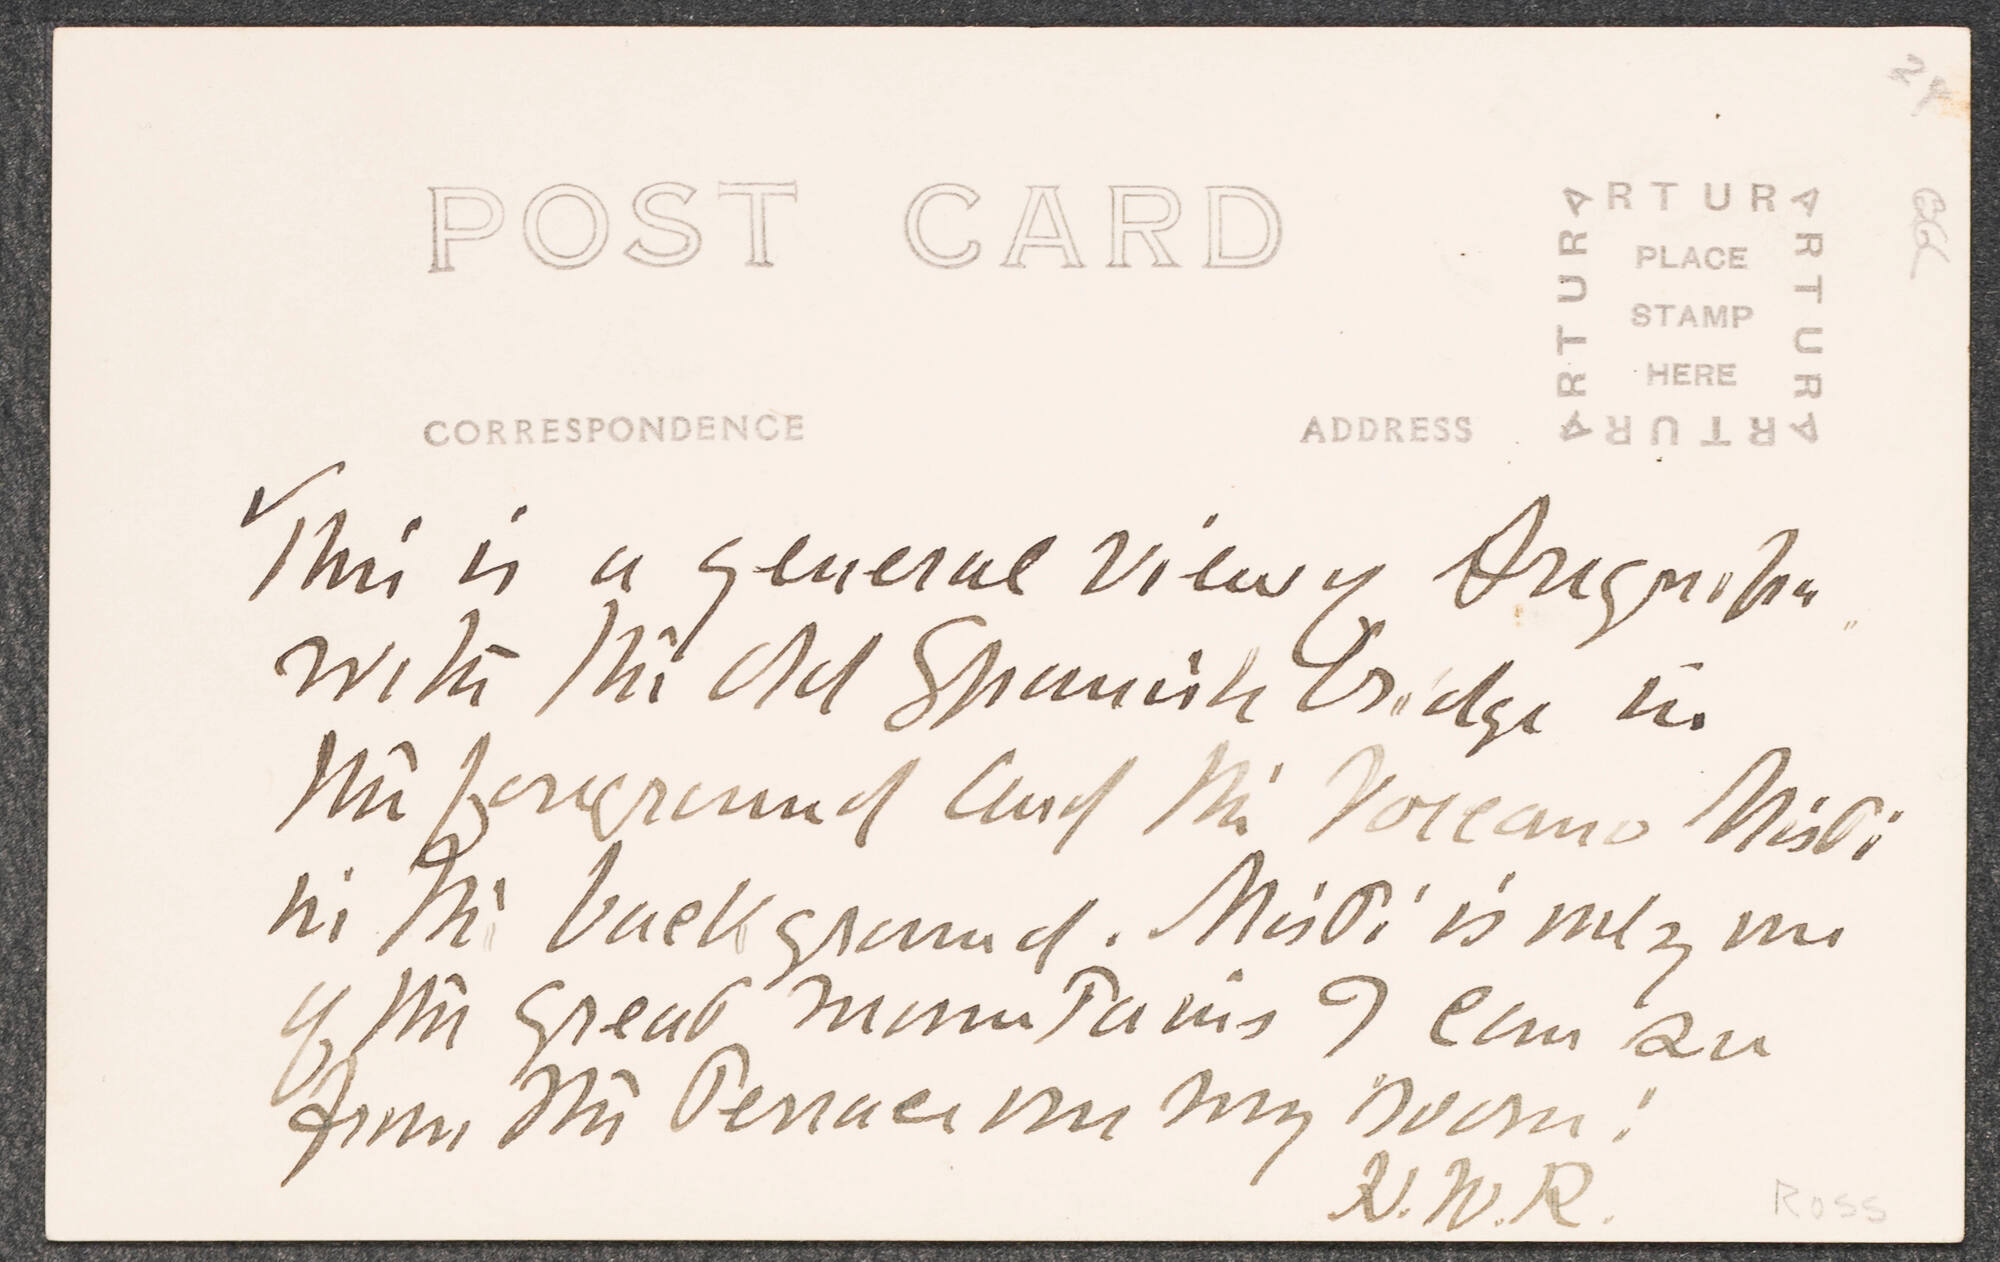 POST CARD
ARTURA
ARTURA
ARTURA
ARTURA
PLACE
STAMP
HERE
CORRESPONDENCE
ADDRESS
This is a general view of Arequipa
with the old Spanish bridge in
the foreground and the Volcano Misti
in the background. Misti is only one
of the great mountains I can see
from the Terrace on my room!
W.R.
Ross